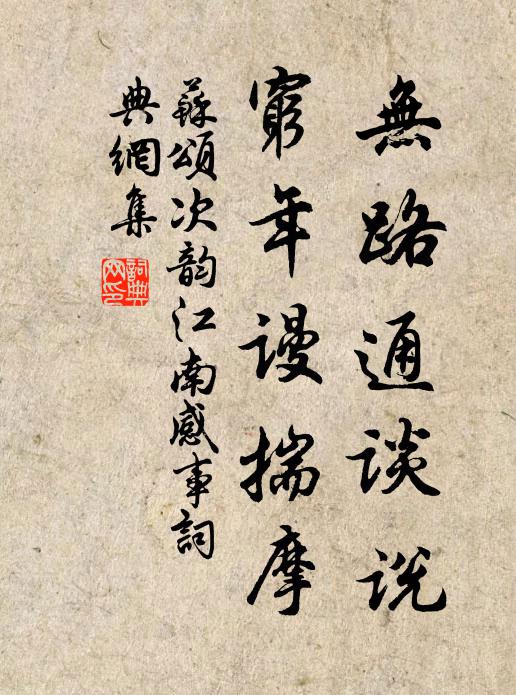 無路通談說
窮年謾揣摩
蘇頌次韵江南感事詞
典網集
詞典網印